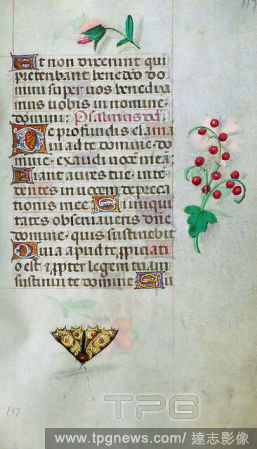 117
Et non dixerunt qui
preteribant benedictio do
mini super vos benedixi
mus vobis in nomine
domini: Psalmus
De profundis clama
vi ad te domine do
mine exaudi vocem meam:
Fiant aures tue inte
ntes in vocem depreca
tionis mee: Si iniqui
tates observaveris domine
domine quis sustinebit
Quia apud te propiciatio
est et propter legem tuam
sustinui te domine Su
117
TPG
www.tpgnews.com / 達志影像